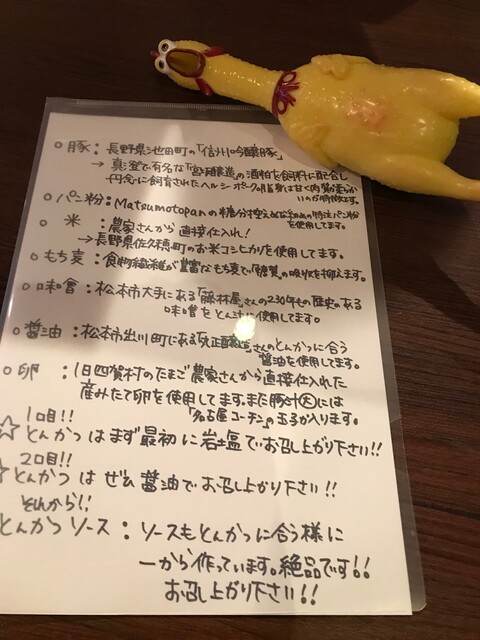 ○豚：長野県池田町の「信州吟醸豚」
→真澄で有名な「宮坂醸造」の酒粕を飼料に配合し
丹念に飼育されたヘルシーポークの脂身は甘く肉質が柔らかいのが特徴です。
○パン粉：Matsumotopanの糖分控えめな
特注パン粉を使用してます。
○米：農家さんから直接仕入れ！
→長野県佐久穂町のお米コシヒカリを使用してます。
○もち麦：食物繊維が豊富なもち麦で「糖質」の吸収を抑えます。
○味噌：松本市大手にある「藤林屋」さんの230年もの歴史のある
味噌をとん汁に使用してます。
○醤油：松本市出川町にある「大正醸造」さんのとんかつに合う
醤油を使用してます。
○卵：旧四賀村のたまご農家さんから直接仕入れた
産みたて卵を使用してます。また豚汁大には
「名古屋コーチン」の玉子が入ります。
1口目!!
☆とんかつはまず最初に岩塩でお召し上がり下さい!!
2口目!!
☆とんかつはぜひ醤油でお召し上がり下さい!!
それから!!
とんかつソース：ソースもとんかつに合う様に
一から作っています。絶品です!!
お召し上がり下さい!!